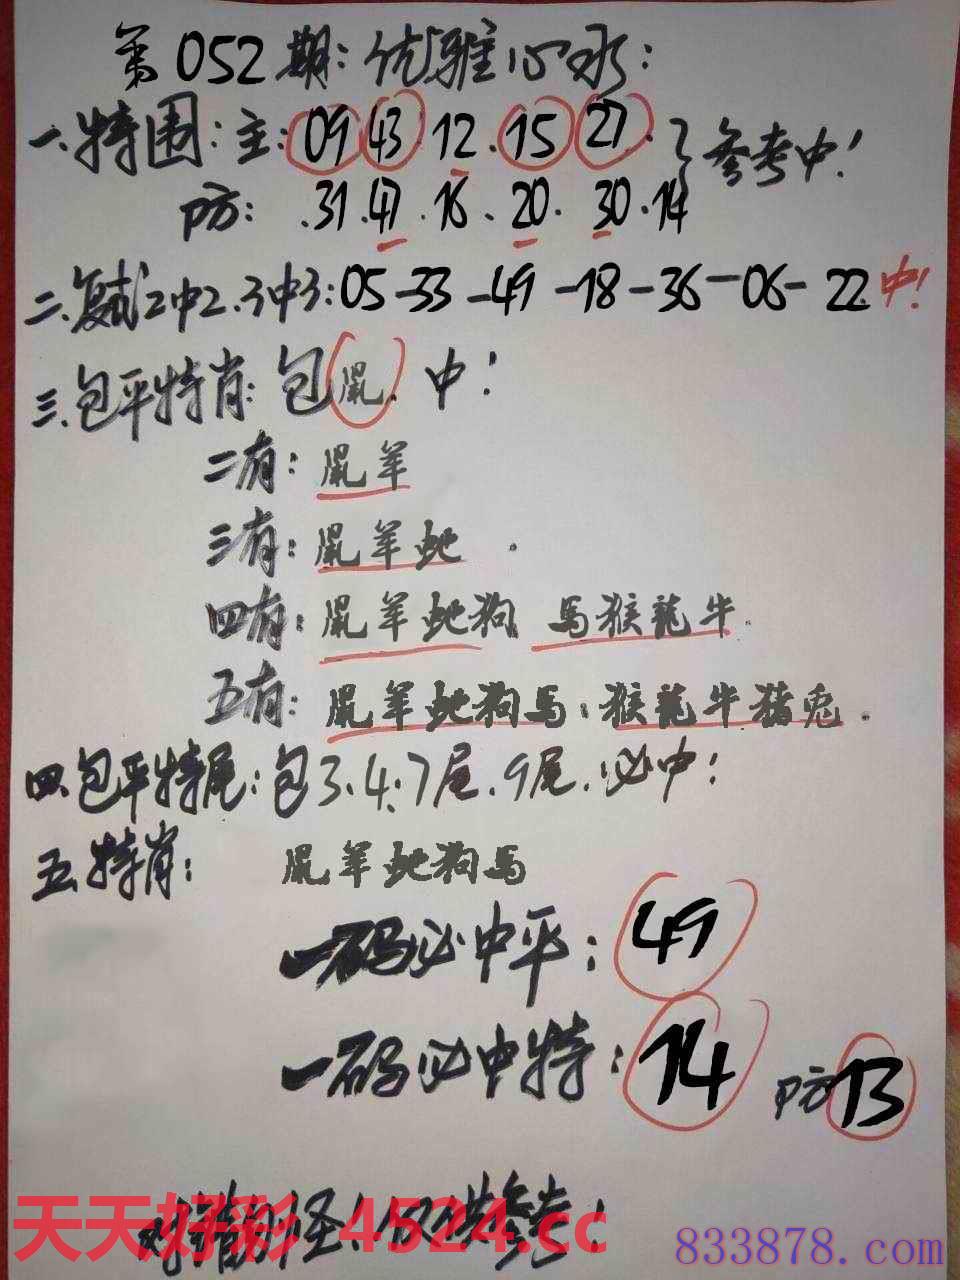 第052期:优雅心水:
一.特围:主:09 43.12.15 27.}参考中!
防:.31.47.16.20.30.14
二.复式2中2.3中3:05-33-49-18-36-06-22 中!
三.包平特肖:包鼠.中!
二有:鼠羊
三有:鼠羊蛇.
四有:鼠羊蛇狗 马猴龍牛.
五有:鼠羊蛇狗马:猴龍牛猪兔.
四.包平特尾:包3.4.7尾.9尾.必中!
五.特肖:鼠羊蛇狗马
一码必中平:49
一码必中特:14 防13
对错别怪!仅供参考!
天天好彩 4524.cc
833878.com